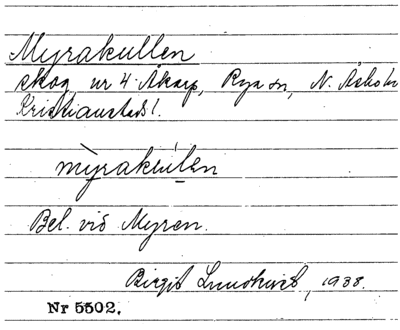 Myrakullen
skog, nr 4 Åkarp, Rya sn, N. Åsbo hd
Kristianstads l.
Bel. vid Myren.
Birgit Lundkvist, 1938.
Nr 5502.